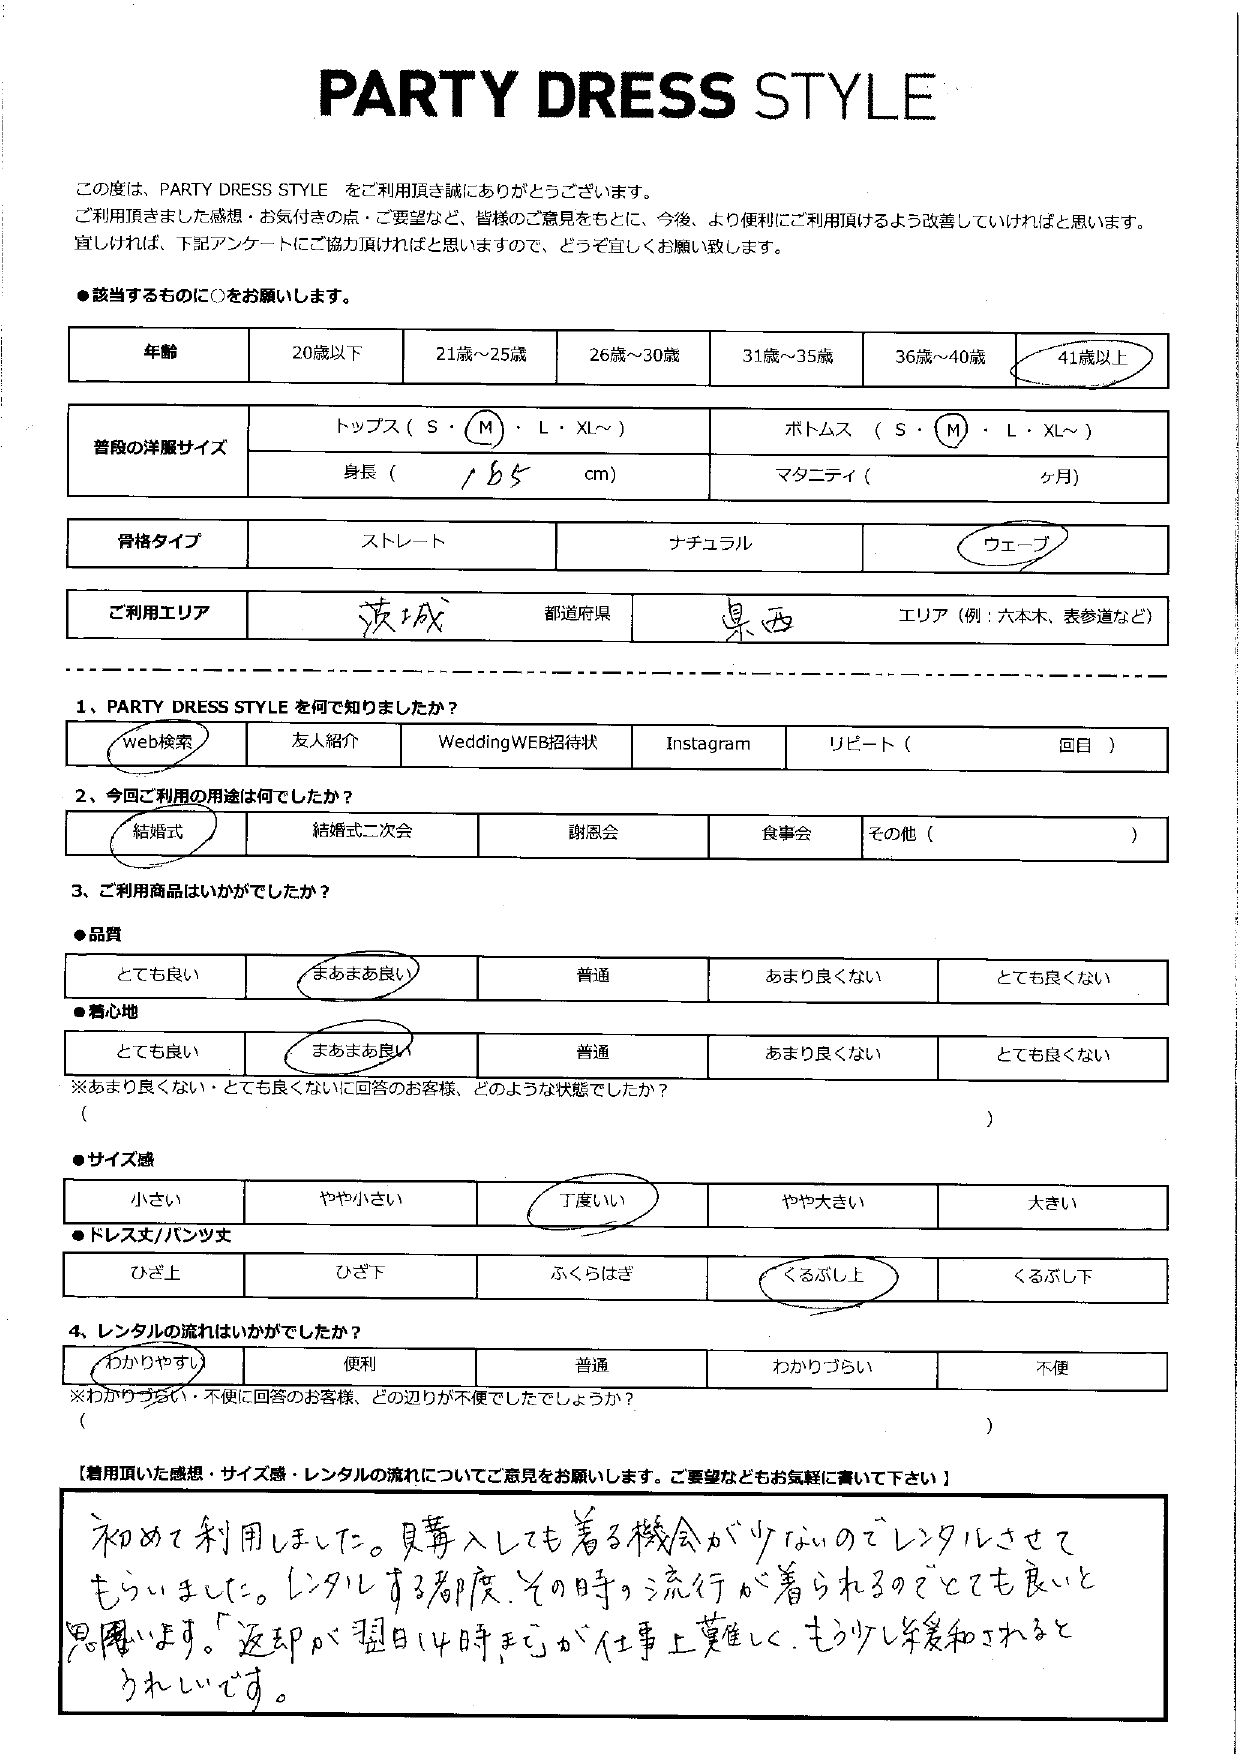 PARTY DRESS STYLE
この度は、PARTY DRESS STYLE をご利用頂き誠にありがとうございます。
ご利用頂きました感想・お気付きの点・ご要望など、皆様のご意見をもとに、今後、より便利にご利用頂けるよう改善していければと思います。
宜しければ、下記アンケートにご協力頂ければと思いますので、どうぞ宜しくお願い致します。
●該当するものに○をお願いします。
年齢 20歳以下 21歳～25歳 26歳～30歳 31歳～35歳 36歳～40歳 41歳以上
普段の洋服サイズ
トップス ( S ・ M ・ L ・ XL～ ) ボトムス ( S ・ M ・ L ・ XL～ )
身長 ( 165 cm) マタニティ ( ヶ月)
骨格タイプ ストレート ナチュラル ウェーブ
ご利用エリア 茨城 都道府県 県西 エリア（例：六本木、表参道など）
1、PARTY DRESS STYLE を何で知りましたか？
web検索 友人紹介 WeddingWEB招待状 Instagram リピート ( 回目 )
2、今回ご利用の用途は何でしたか？
結婚式 結婚式二次会 謝恩会 食事会 その他 ( )
3、ご利用商品はいかがでしたか？
●品質
とても良い まあまあ良い 普通 あまり良くない とても良くない
●着心地
とても良い まあまあ良い 普通 あまり良くない とても良くない
※あまり良くない・とても良くないに回答のお客様、どのような状態でしたか？
( )
●サイズ感
小さい やや小さい 丁度いい やや大きい 大きい
●ドレス丈/パンツ丈
ひざ上 ひざ下 ふくらはぎ くるぶし上 くるぶし下
4、レンタルの流れはいかがでしたか？
わかりやすい 便利 普通 わかりづらい 不便
※わかりづらい・不便に回答のお客様、どの辺りが不便でしたでしょうか？
( )
【着用頂いた感想・サイズ感・レンタルの流れについてご意見をお願いします。ご要望などもお気軽に書いて下さい 】
初めて利用しました。購入しても着る機会が少ないのでレンタルさせて
もらいました。レンタルする都度、その時の流行が着られるのでとても良いと
思います。「返却が翌日14時まで」が仕事上難しく、もう少し緩和されると
うれしいです。